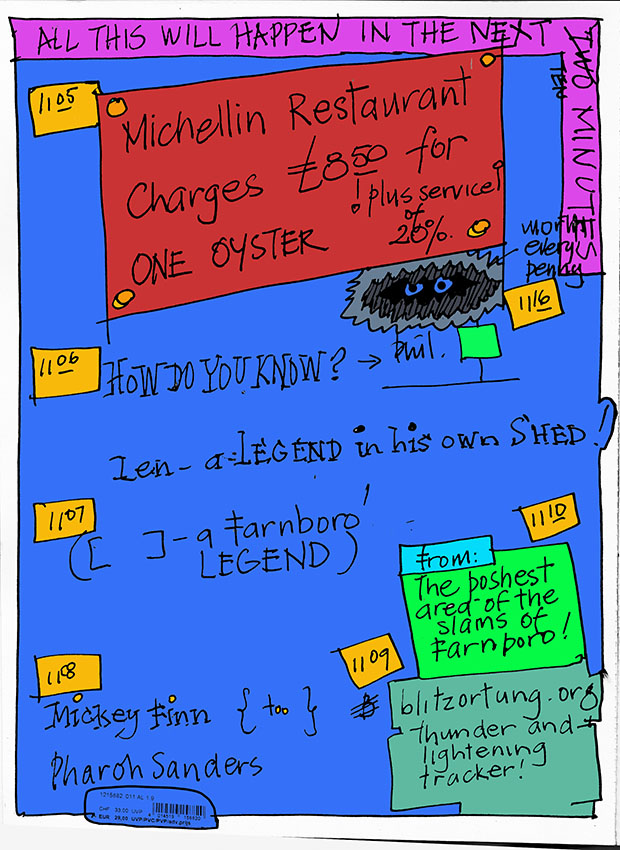 ALL THIS WILL HAPPEN IN THE NEXT
TWO MINUTES
TEN
1105
Michellin Restaurant
Charges £850 for
! plus service!
of
ONE OYSTER 20%.
worth
every
penny
1116
1106
HOW DO YOU KNOW? → Phil.
Len - a LEGEND in his own SHED!
1107
([ ] - a Farnboro'
LEGEND)
1110
From:
The poshest
area of the
slams of
Farnboro!
1108
1109
Mickey Finn { too }
Pharoh Sanders
blitzortung.org
thunder and
lightening
tracker!
CHF 33.00 UVP